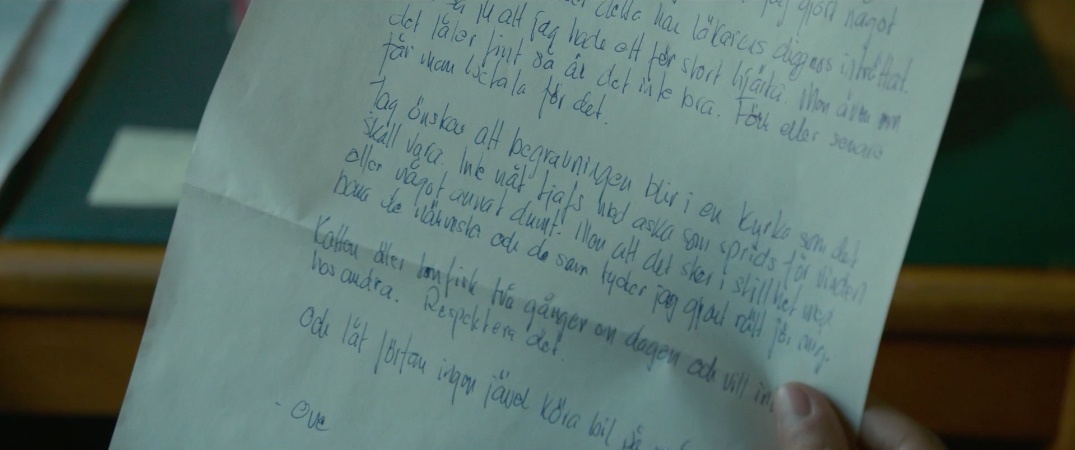 jag gjort något
detta har läkarens diagnos inträffat.
att jag hade ett för stort hjärta. Men även om
det låter fint så är det inte bra. Förr eller senare
får man betala för det.
Jag önskar att begravningen blir i en kyrka som det
skall vara. Inte nåt tjafs med aska som sprids för vinden
eller något annat dumt. Men att det sker i stillhet med
bara de närmsta och de som tycker jag gjort rätt för mig.
Katten äter tonfisk två gånger om dagen och vill
hos andra. Respektera det.
Och låt förfan ingen jävel köra bil
- Ove